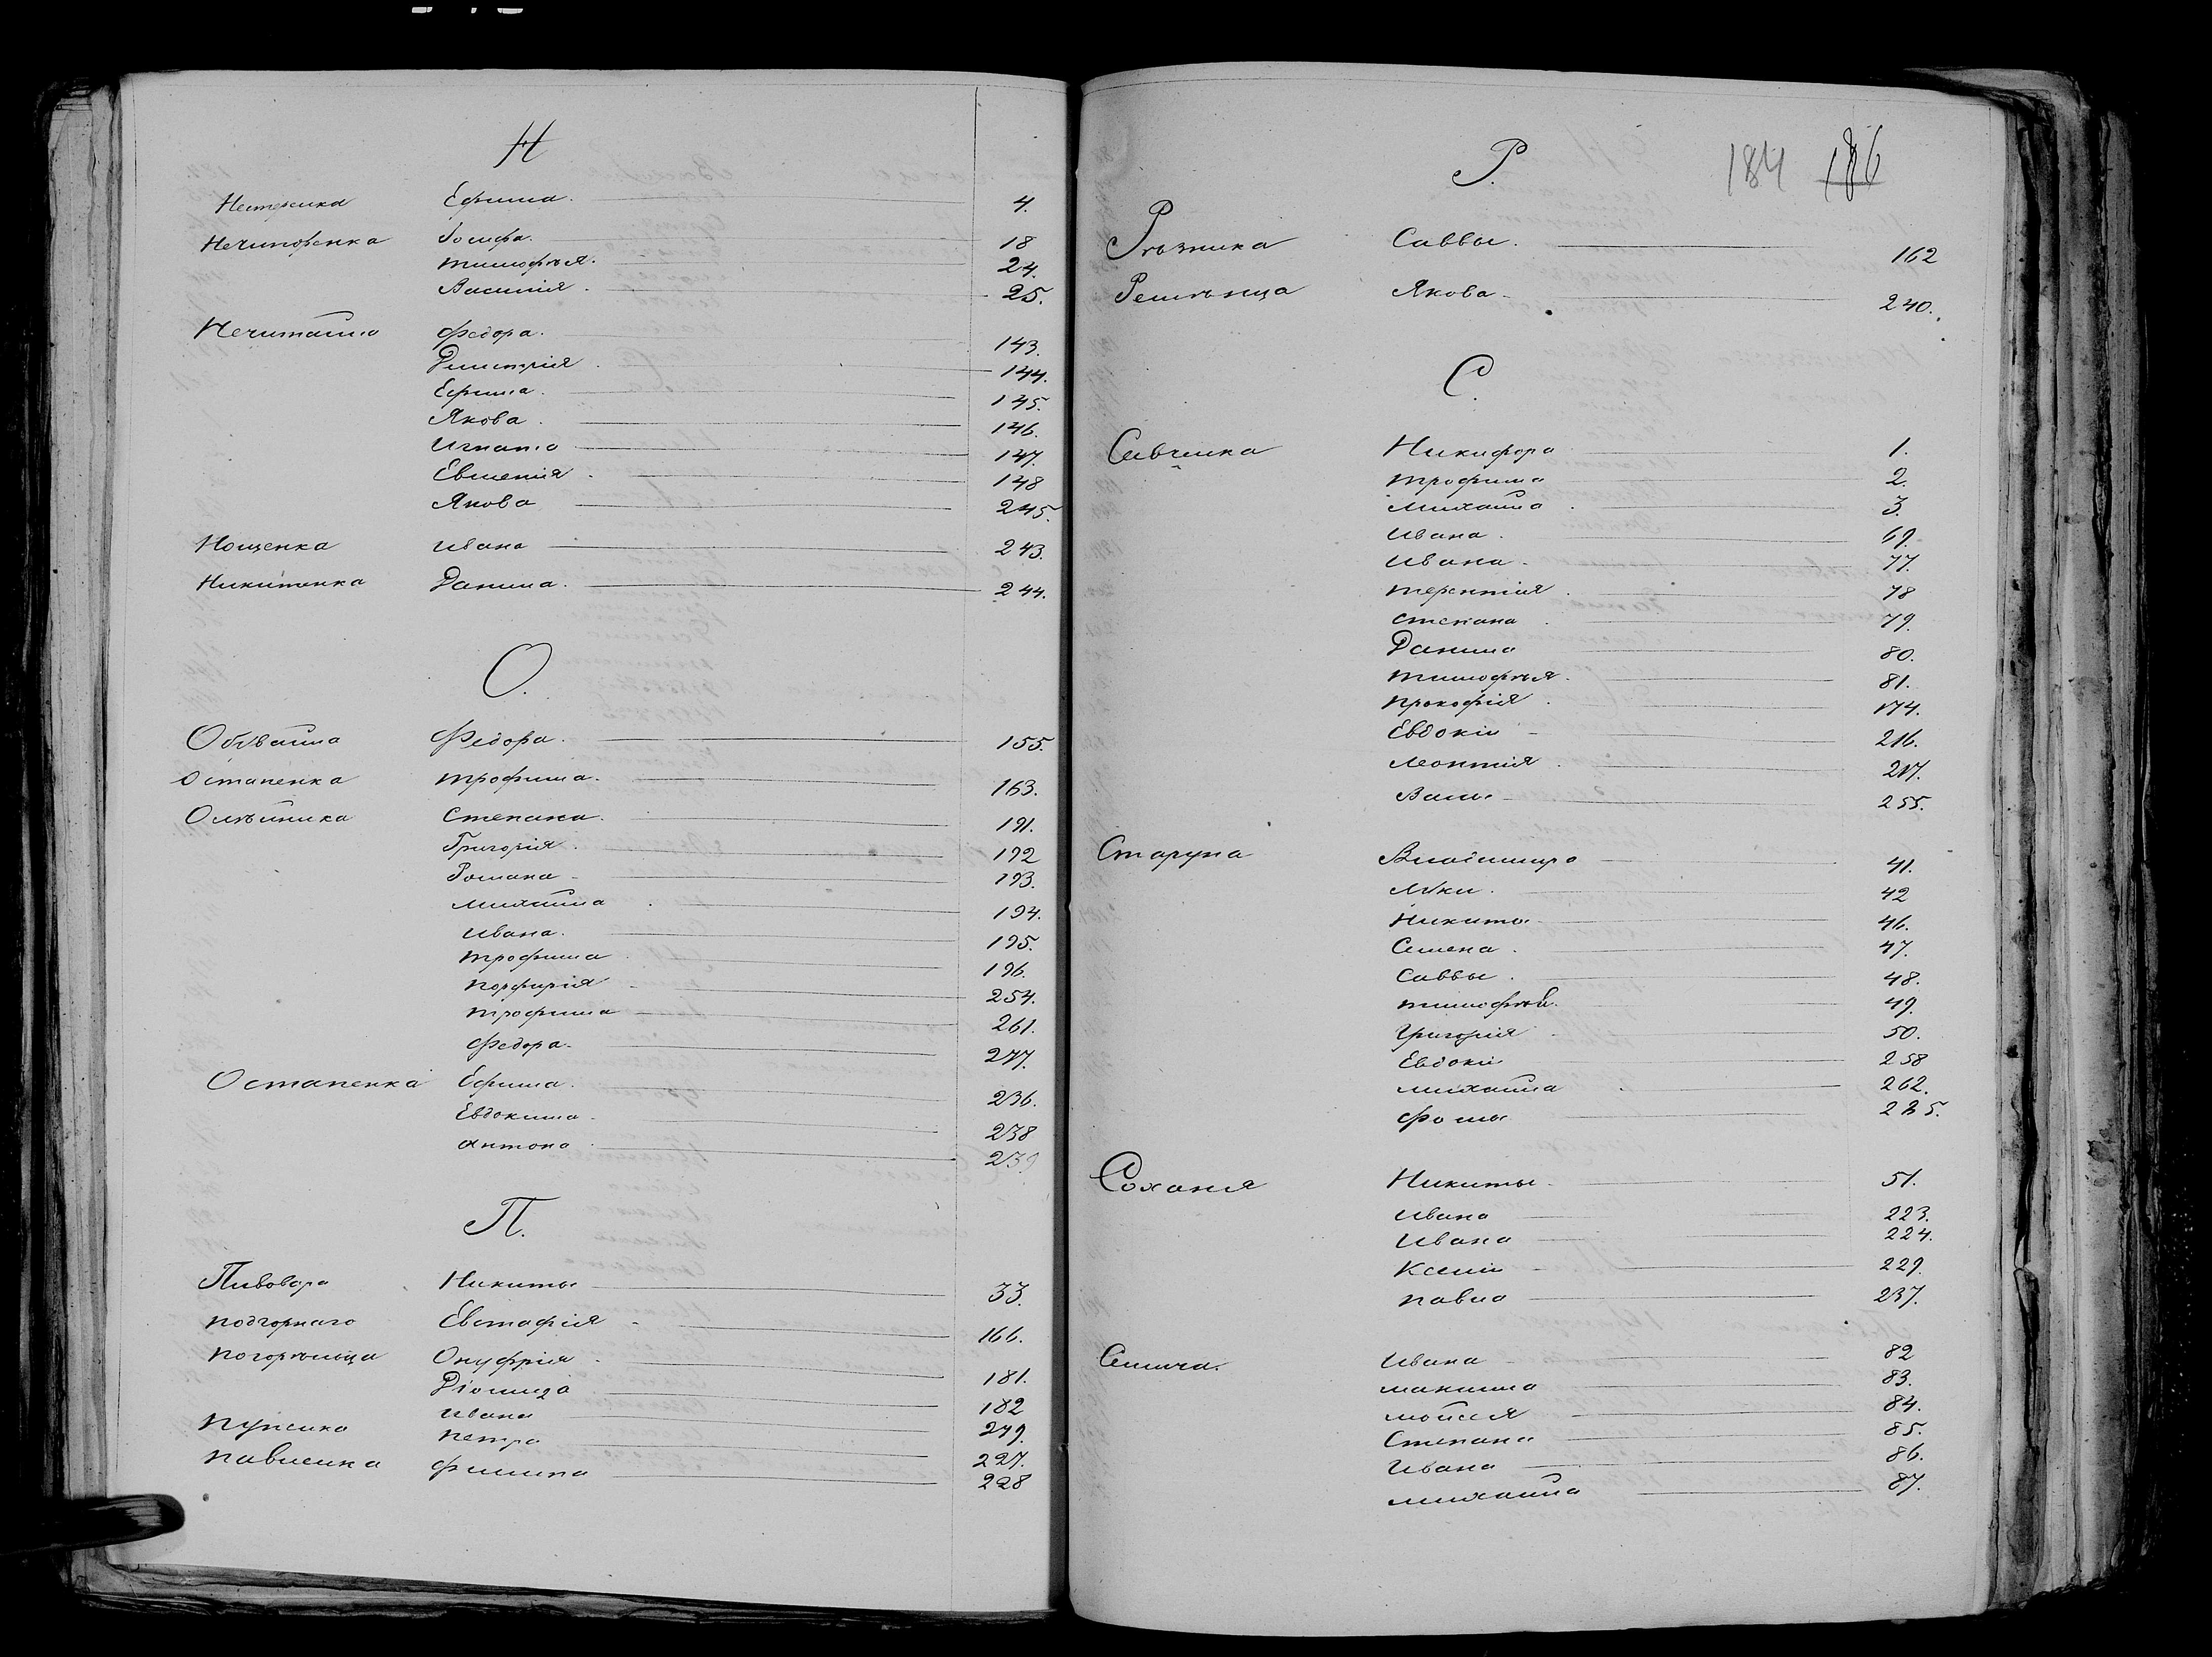 Н
Нестеренка Ефима. 4.
Нечипоренка Iосифа. 18
Тимофѣя. 24.
Василія. 25.
Нечитайла Федора. 143.
Димитрія. 144.
Ефима. 145.
Якова. 146.
Игната 147.
Евгенія. 148
Якова 245.
Нощенка Ивана 243.
Никитенка Данила. 244.
О.
Обувайла Федора. 155.
Остапенка Трофима. 163.
Олѣйника Степана. 191.
Григорія. 192
Романа 193.
Михаила. 194.
Ивана. 195.
Трофима 196.
Порфирія 254.
Трофима 261.
Федора. 277.
Остапенка Ефима. 236.
Евдокима. 238
Антона 239
П.
Пивовара Никиты 33.
Подгорнаго Евстафія 166.
Погорѣльца Онуфрія 181.
Діомида 182
Ивана 279.
Пупенка Петра 227.
Павленка Филипа 228
Р. 184 186
Рѣзника Саввы. 162
Решѣтца Якова 240.
С.
Савченка Никифора 1.
Трофима 2.
Михаила 3.
Ивана. 69.
Ивана. 77.
Терентія. 78
Степана 79.
Данила 80.
Тимофѣя. 81.
Прокофія. 174.
Евдокіи 216.
Леонтія. 217.
Вассы 255.
Старуна Владиміра 41.
Луки. 42
Никиты 46.
Семена. 47.
Саввы. 48.
Тимофѣя. 49.
Григорія 50.
Евдокіи 258
Михаила 262.
Фомы 225.
Соханя Никиты 51.
Ивана 223.
Ивана 224.
Ксеніи 229.
Павла 237.
Ивана 82
Максима 83.
Мойсея 84.
Степана 85.
Ивана 86.
Михаила 87.